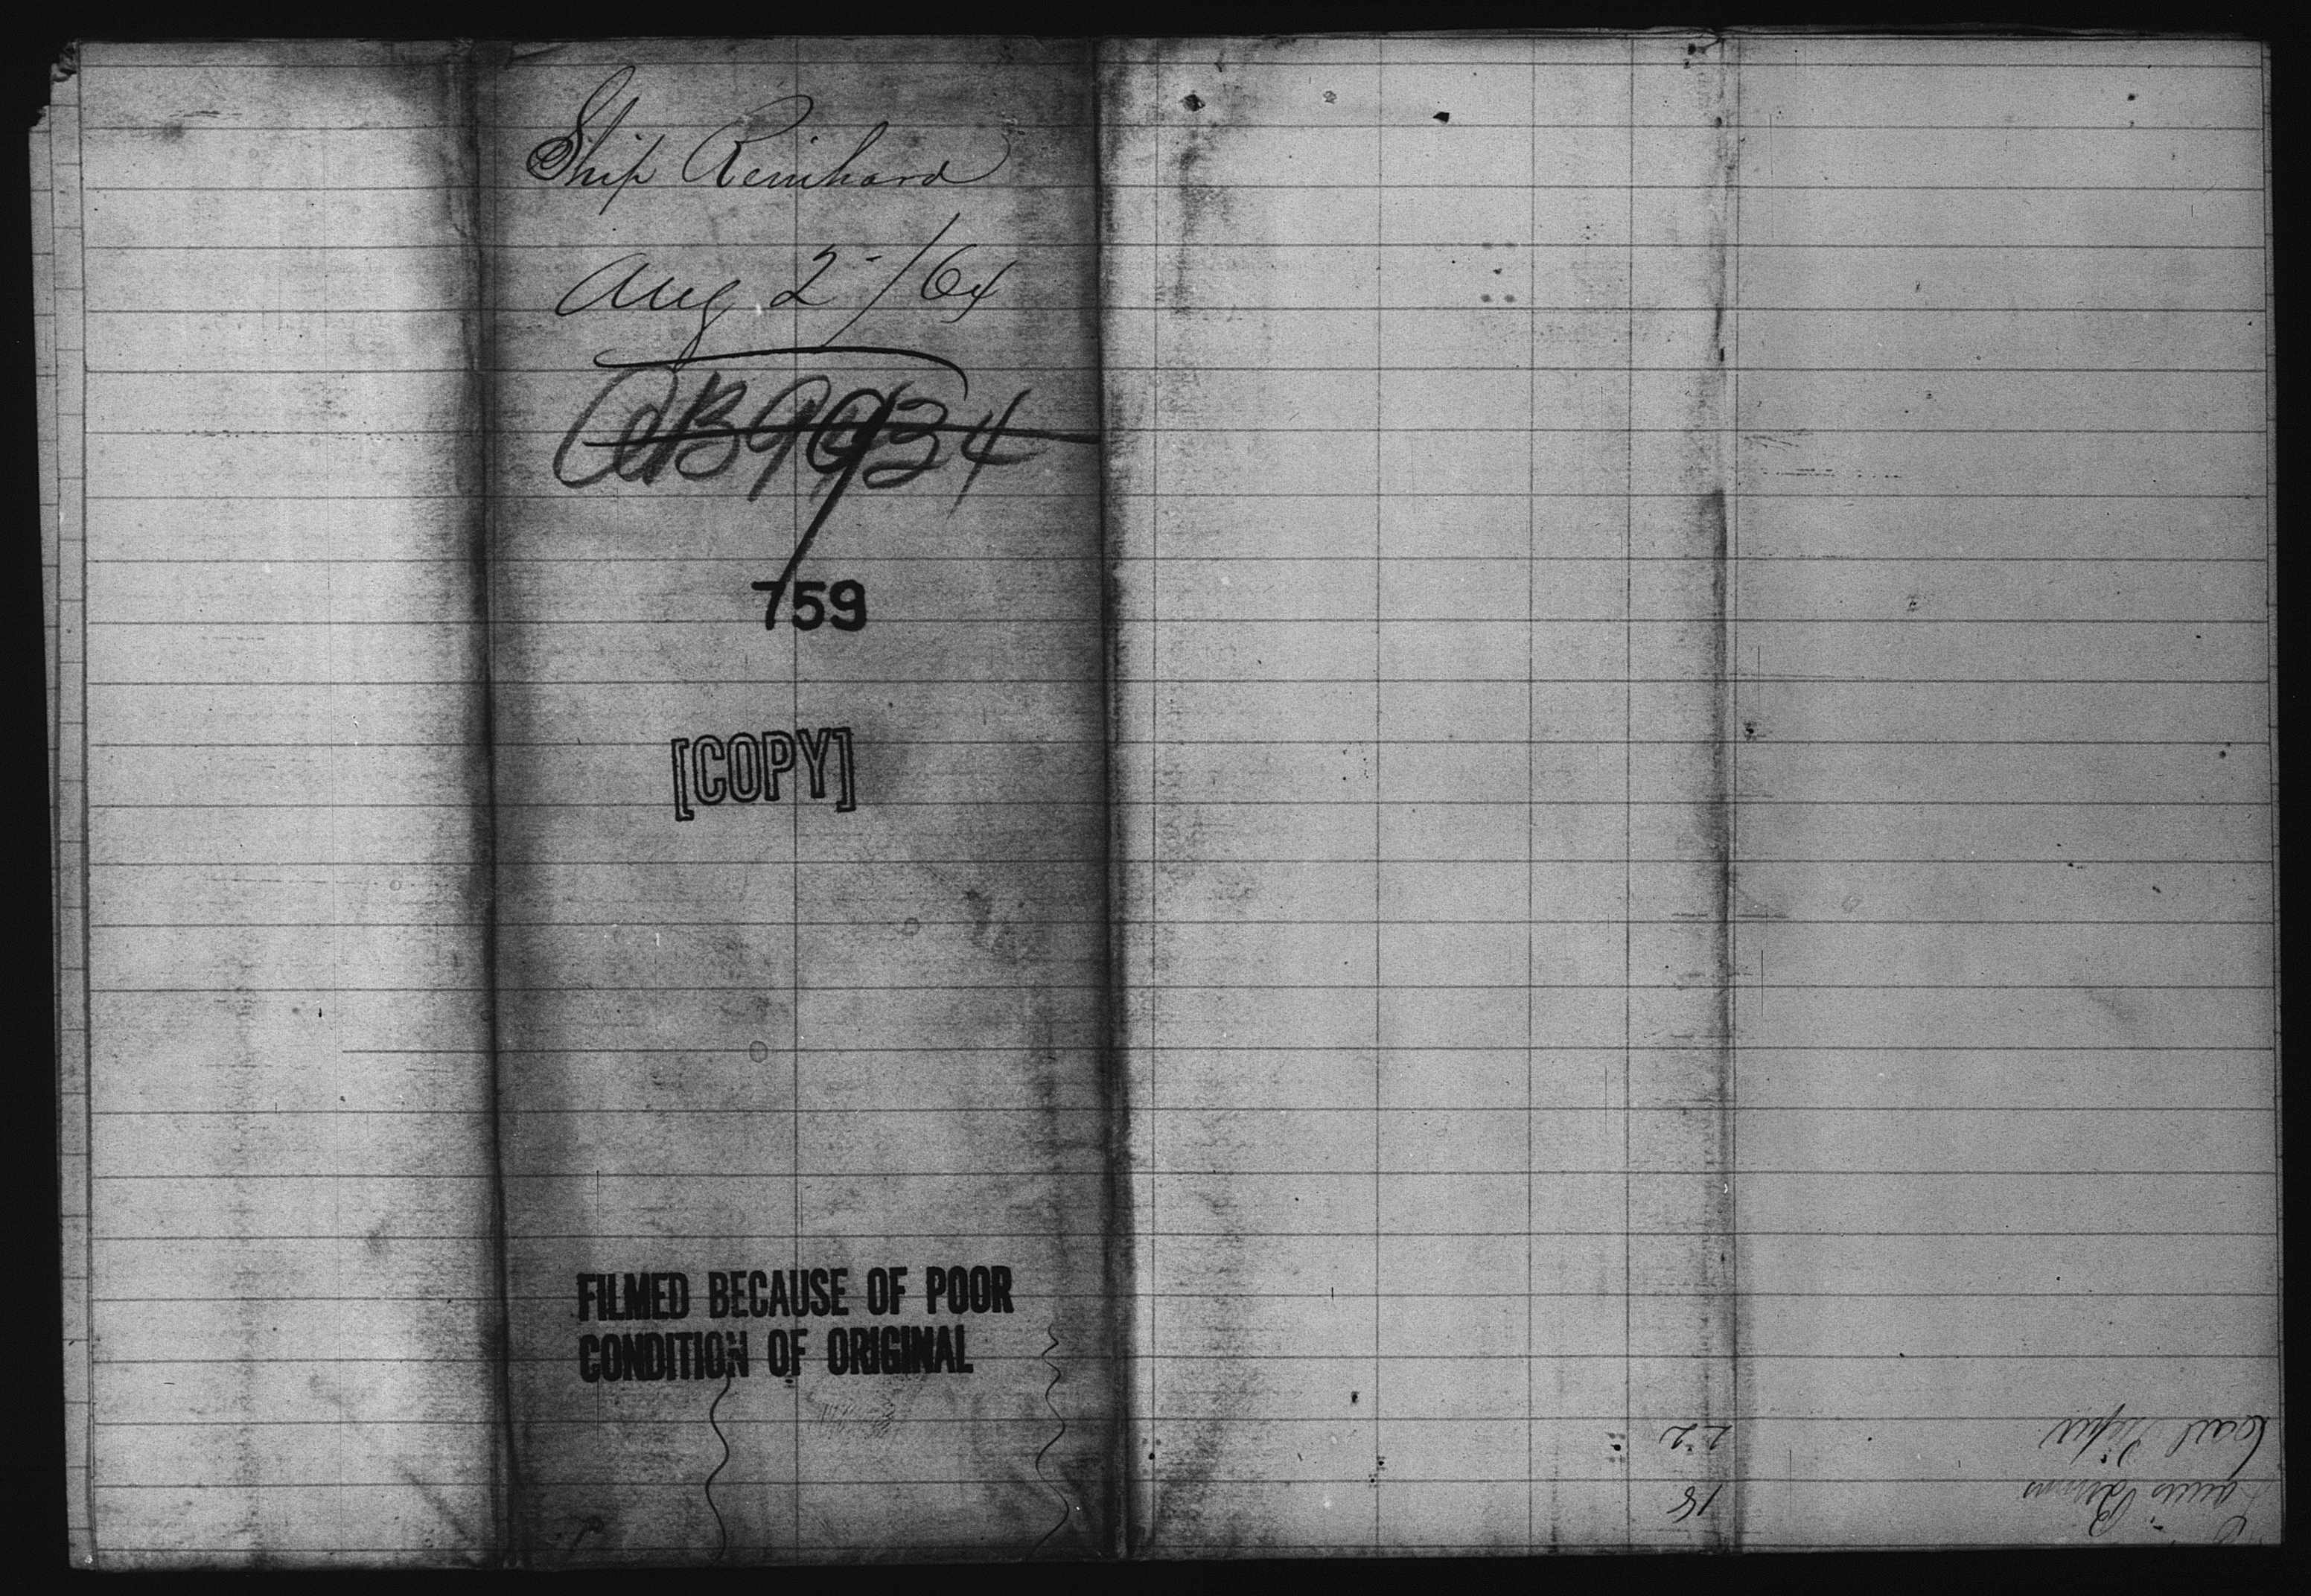 Ship Reinhard
Aug 2-/64
759
[COPY]
FILMED BECAUSE OF POOR
CONDITION OF ORIGINAL
18
Carl
22